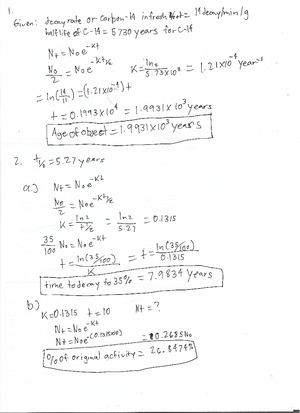 1.
Given: decay rate or carbon-14 in fresh = 14 decay/min/g
half life of C-14 = 5730 years for C-14
Nt = N₀e^-Kt
N₀/2 = N₀e^-Kt½ K = ln2/5.73x10³ = 1.21x10^-4 year^-1
= ln(14/11) = (1.21x10^-4)t
t = 0.1993x10⁴ = 1.9931x10³ years
Age of object = 1.9931x10³ years
2. t½ = 5.27 years
a.) Nt = N₀e^-Kt
N₀/2 = N₀e^-Kt½
K = ln2/t½ = ln2/5.27 = 0.1315
35/100 N₀ = N₀e^-Kt
t = ln(35/100)/K = t = ln(35/100)/0.1315
time to decay to 35% = 7.9834 years
b.) K=0.1315 t=10 Nt=?
Nt = N₀e^-Kt
Nt = N₀e^-(0.1315x10) = 0.2685N₀
% of original activity = 26.8474%